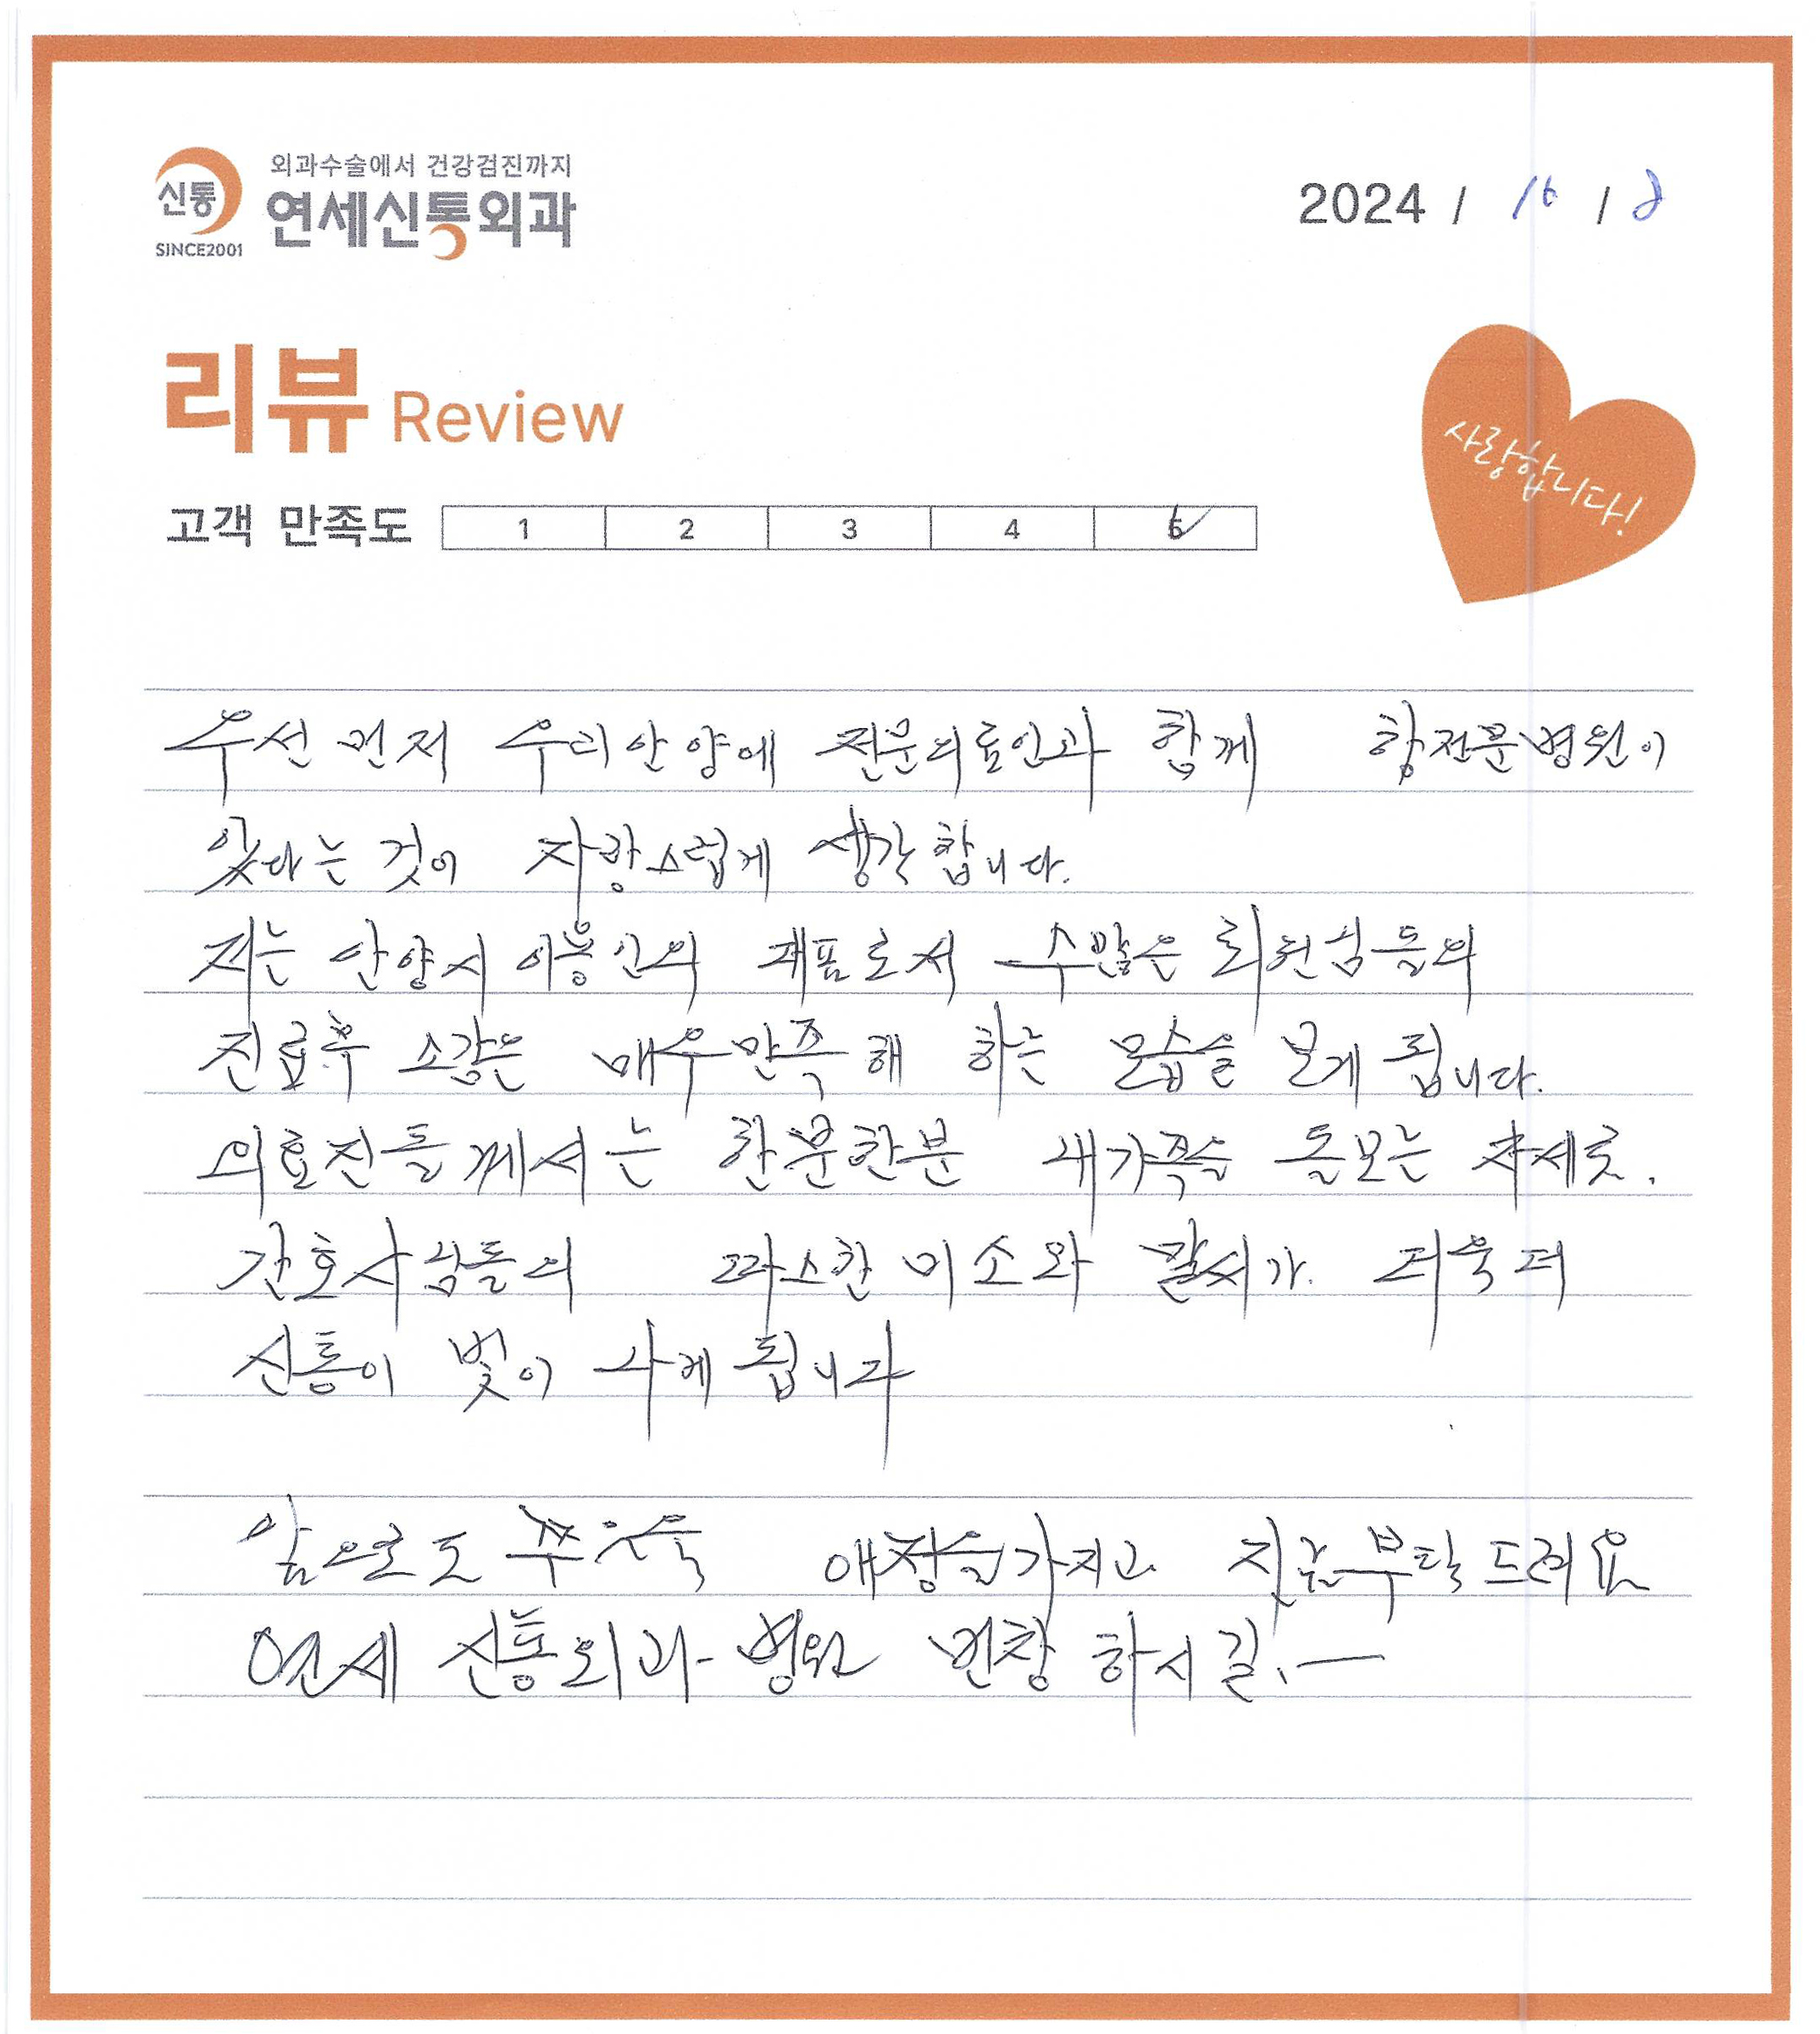 외과수술에서 건강검진까지
신통 연세신통외과
SINCE2001
2024 / 10 / 8
리뷰 Review
사랑합니다!
고객 만족도 1 2 3 4 5
우선 먼저 우리안양에 전문의료인과 함께 항전문병원이
있다는 것이 자랑스럽게 생각합니다.
저는 안양시 이용인의 대표로서 수많은 회원님들의
진료후 소감은 매우만족해 하는 모습을 보게 됩니다.
의료진들께서는 한분한분 내가족을 돌보는 자세로.
간호사님들의 따스한 미소와 말씨가. 더욱더
신통이 빛이 나게 됩니다
앞으로도 쭈욱 애정을가지고 부탁드려요
연세 신통외과 병원 번창 하시길.—